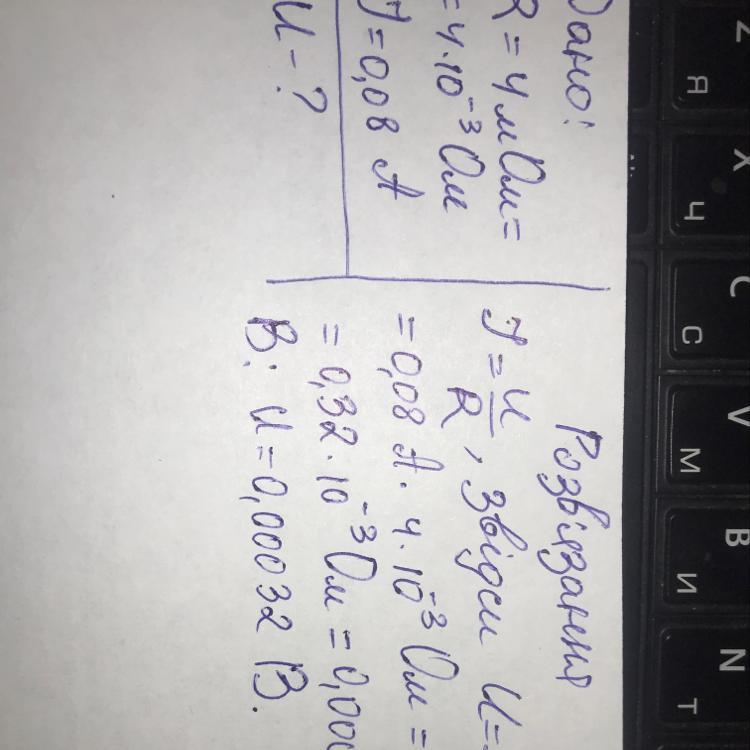 Дано:
R = 4 мОм =
= 4·10⁻³ Ом
I = 0,08 А
U - ?
Розв'язання
I = U/R, звідси U =
= 0,08 А · 4·10⁻³ Ом =
= 0,32·10⁻³ Ом = 0,000
В: U = 0,00032 В.
Z Я
X Ч
C С
V М
B И
N Т